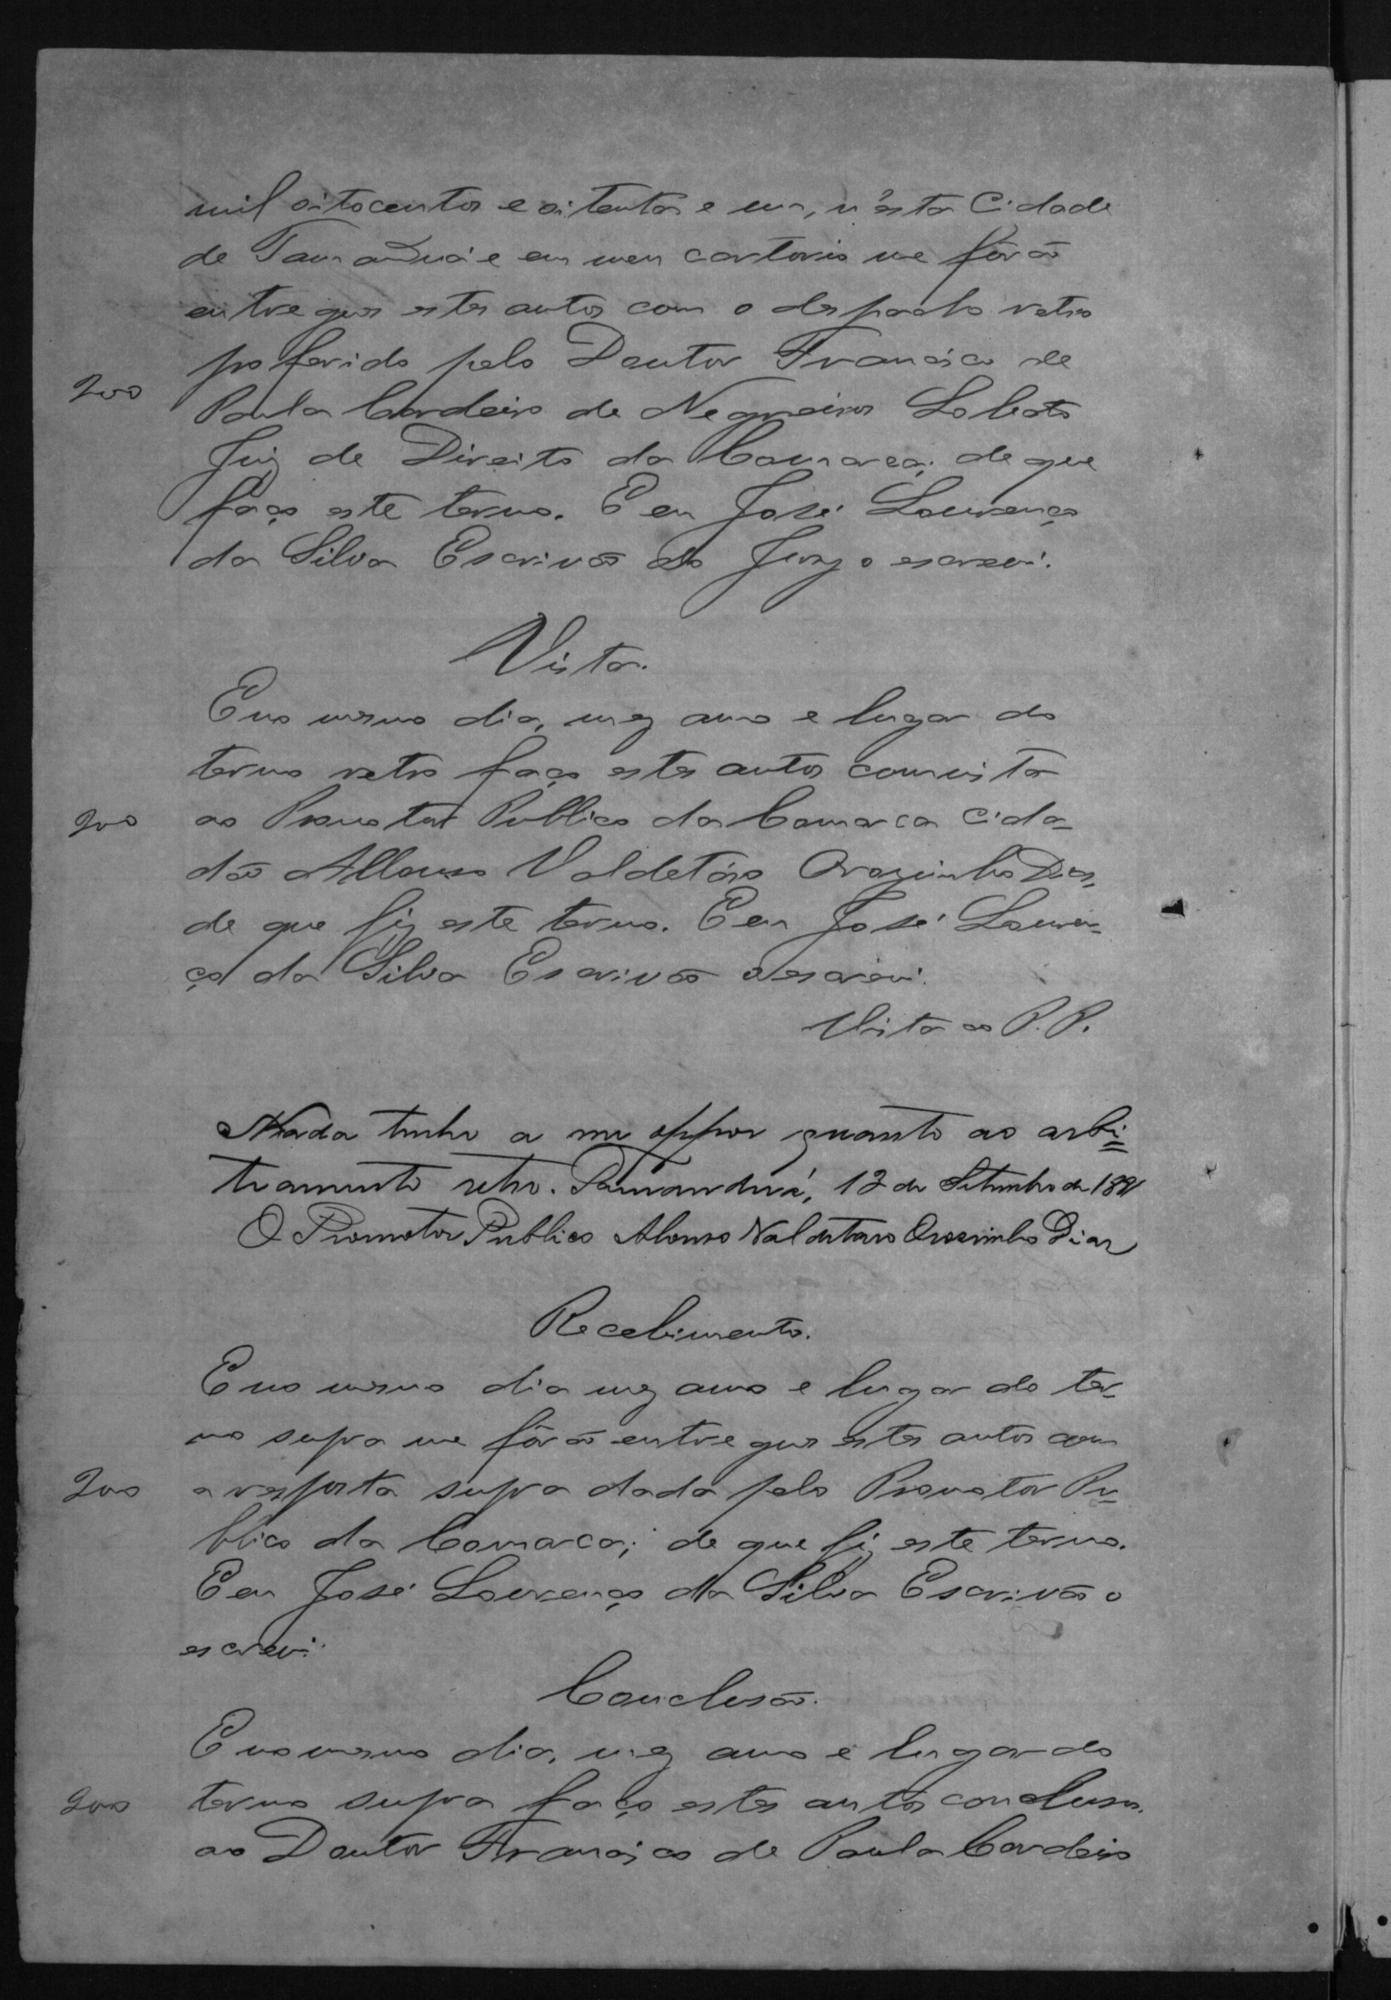 mil oitocentos e oitenta e um, n'esta Cidade
de Tamanduá e em meu cartorio me fôrão
entregues estes autos com o despacho retro
proferido pelo Doutor Francisco de
200
Paula Cordeiro de Negreiros Lobato
Juiz de Direito da Comarca; de que
faço este termo. E eu José Lourenço
da Silva Escrivão do Jury o escrevi.
Vista.
E no mesmo dia, mez anno e lugar do
termo retro faço estes autos com vista
200
ao Promotor Publico da Comarca Cida-
dão Affonso Valdetáro Orozimbo Dias,
de que fiz este termo. E eu José Louren-
ço da Silva Escrivão o escrevi.
Vista ao P. P.
Nada tenho a me oppor quanto ao arbi=
tramento retro. Tamanduá, 12 de Setembro de 1881
O Promotor Publico Alonso Valdetaro Orosimbo Dias
Recebimento.
E no mesmo dia mez anno e lugar do ter-
mo supra me fôrão entregues estes autos com
200
a resposta supra dada pelo Promotor Pu-
blico da Comarca; de que fiz este termo.
E eu José Lourenço da Silva Escrivão o
escrevi.
Conclusão.
E no mesmo dia, mez anno e lugar do
200
termo supra faço estes autos conclusos
ao Doutor Francisco de Paula Cordeiro